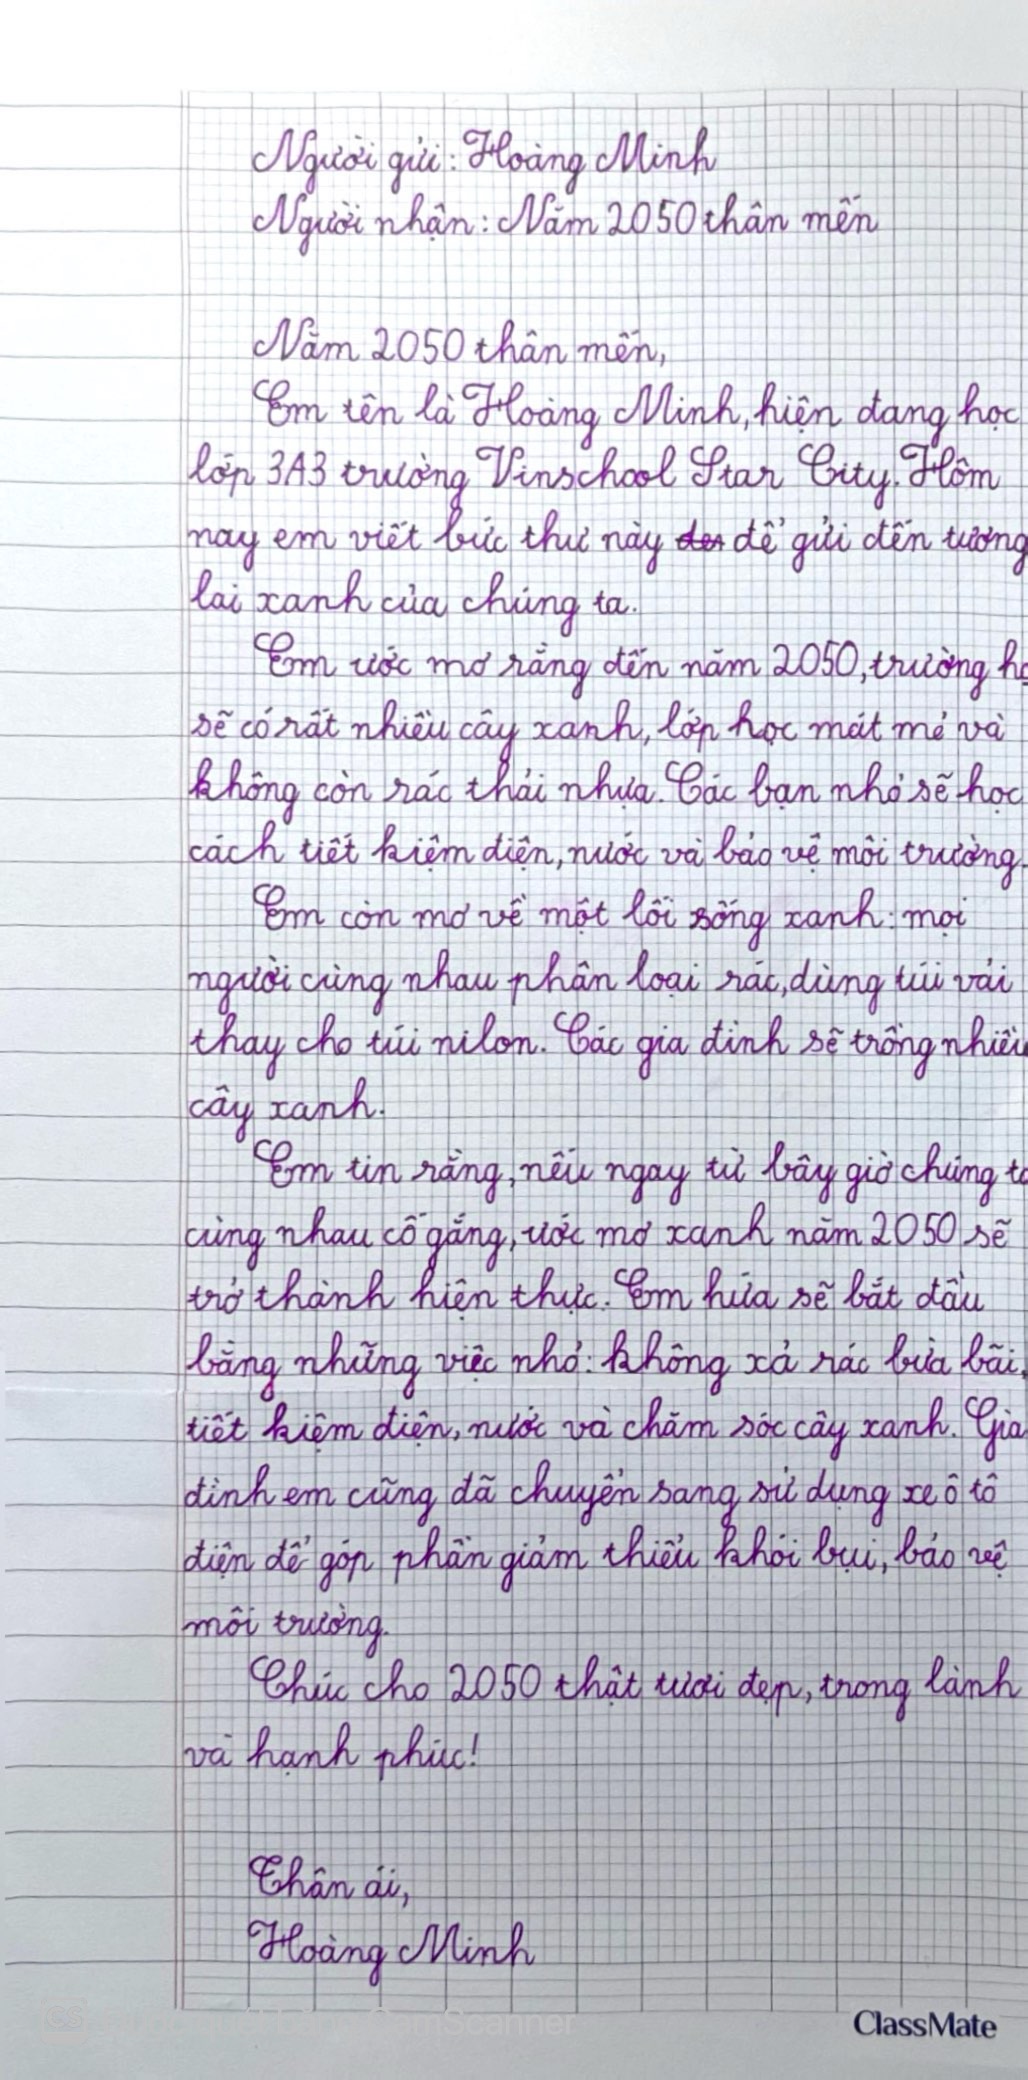 Người gửi: Hoàng Minh
Người nhận: Năm 2050 thân mến
Năm 2050 thân mến,
Em tên là Hoàng Minh, hiện đang học
lớp 3A3 trường Vinschool Star City. Hôm
nay em viết bức thư này để gửi đến tương
lai xanh của chúng ta.
Em ước mơ rằng đến năm 2050, trường họ
sẽ có rất nhiều cây xanh, lớp học mát mẻ và
không còn rác thải nhựa. Các bạn nhỏ sẽ học
cách tiết kiệm điện, nước và bảo vệ môi trường.
Em còn mơ về một lối sống xanh: mọi
người cùng nhau phân loại rác, dùng túi vải
thay cho túi nilon. Các gia đình sẽ trồng nhiều
cây xanh.
Em tin rằng, nếu ngay từ bây giờ chúng ta
cùng nhau cố gắng, ước mơ xanh năm 2050 sẽ
trở thành hiện thực. Em hứa sẽ bắt đầu
bằng những việc nhỏ: không xả rác bừa bãi,
tiết kiệm điện, nước và chăm sóc cây xanh. Gia
đình em cũng đã chuyển sang sử dụng xe ô tô
điện để góp phần giảm thiểu khói bụi, bảo vệ
môi trường.
Chúc cho 2050 thật tươi đẹp, trong lành
và hạnh phúc!
Thân ái,
Hoàng Minh
CS CamScanner
ClassMate